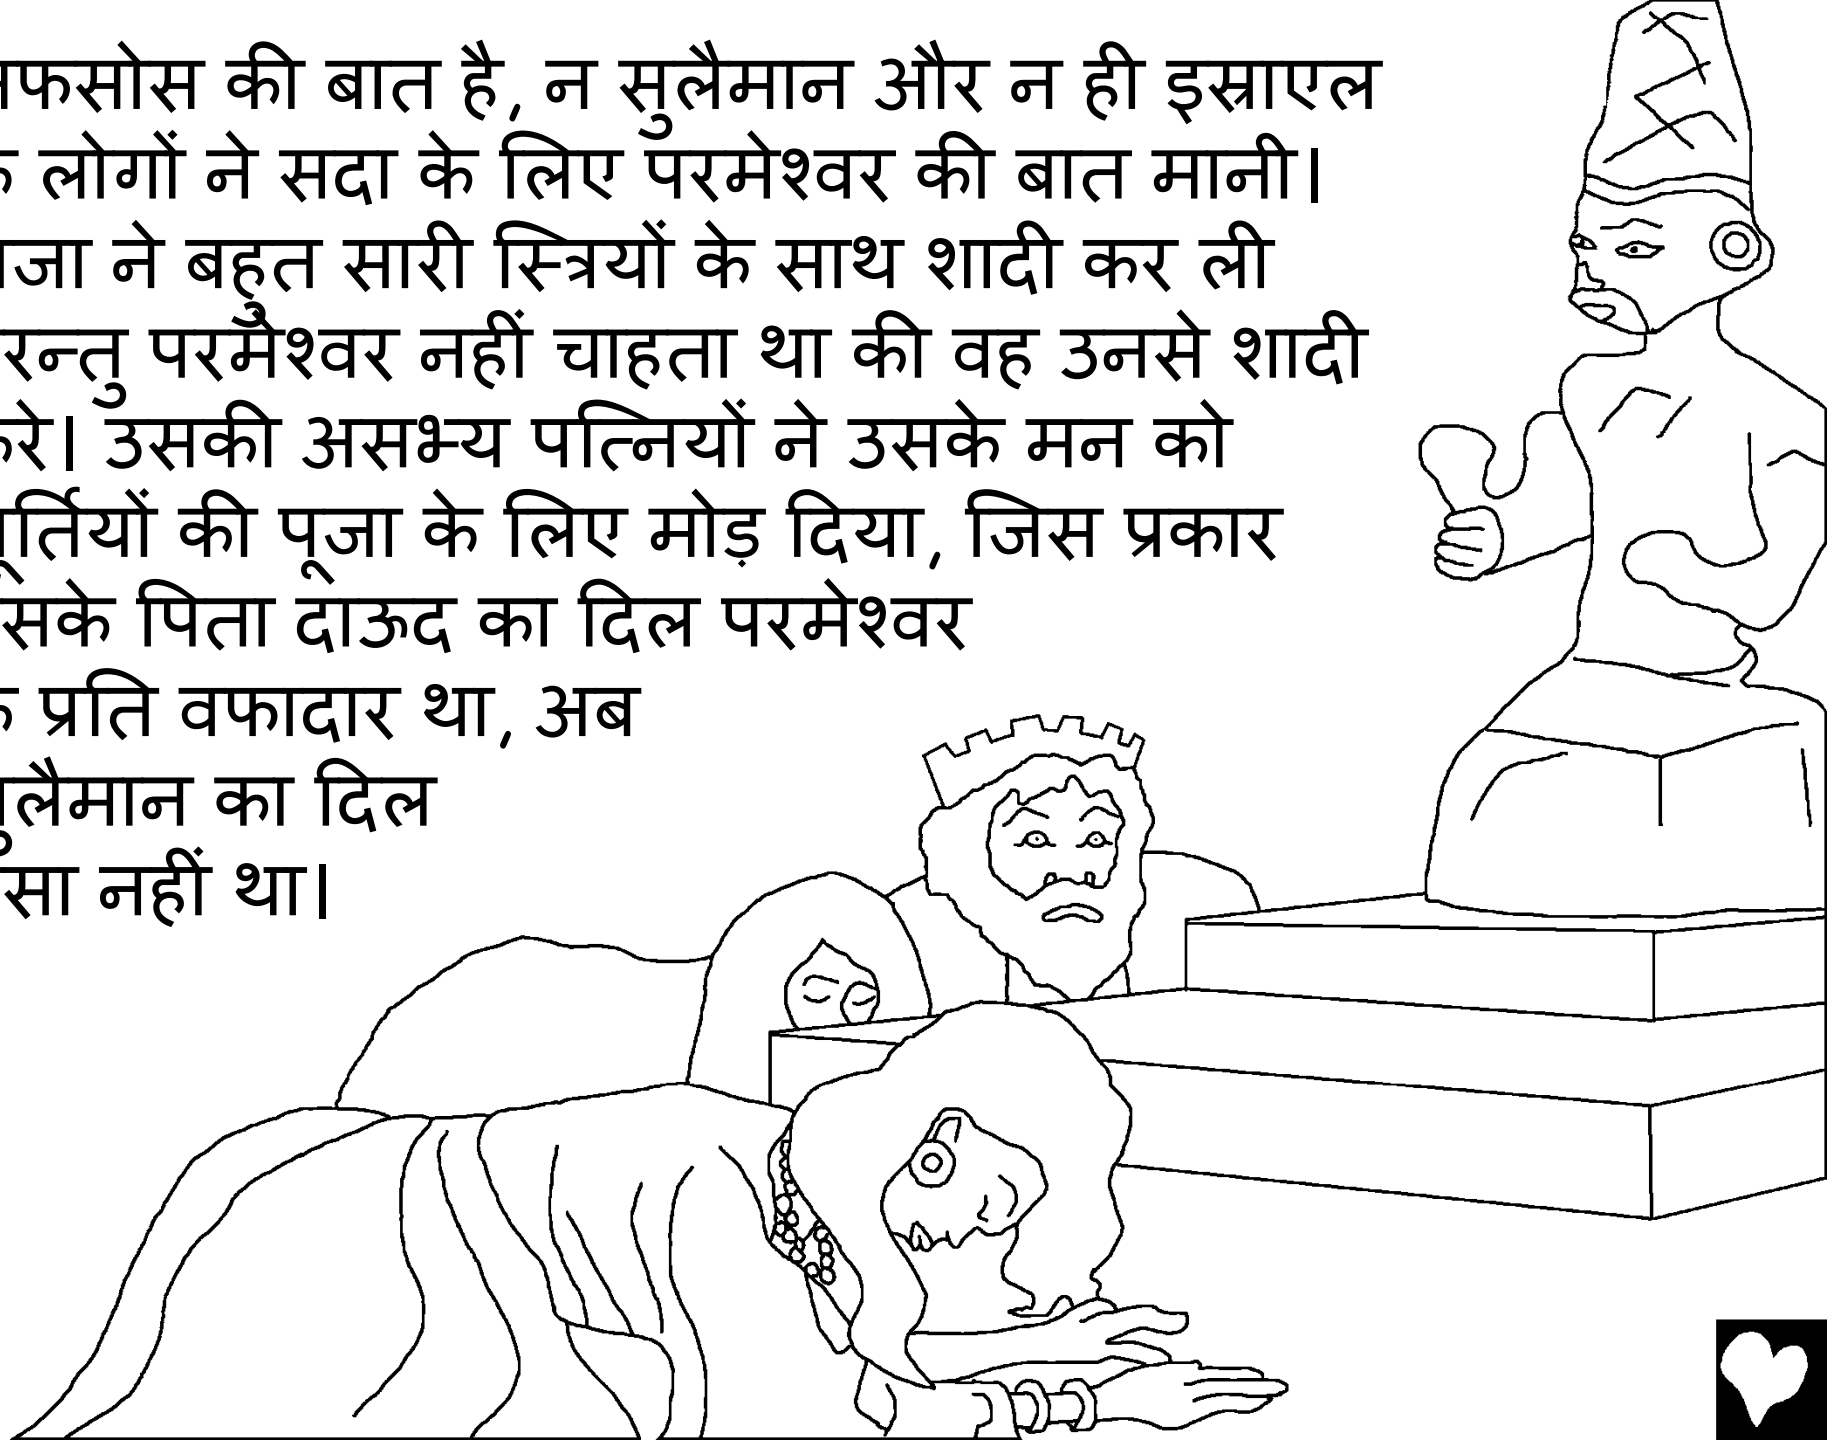 अफसोस की बात है, न सुलैमान और न ही इस्राएल
के लोगों ने सदा के लिए परमेश्वर की बात मानी।
राजा ने बहुत सारी स्त्रियों के साथ शादी कर ली
परन्तु परमेश्वर नहीं चाहता था की वह उनसे शादी
करे। उसकी असभ्य पत्नियों ने उसके मन को
मूर्तियों की पूजा के लिए मोड़ दिया, जिस प्रकार
उसके पिता दाऊद का दिल परमेश्वर
के प्रति वफादार था, अब
सुलैमान का दिल
नहीं था।